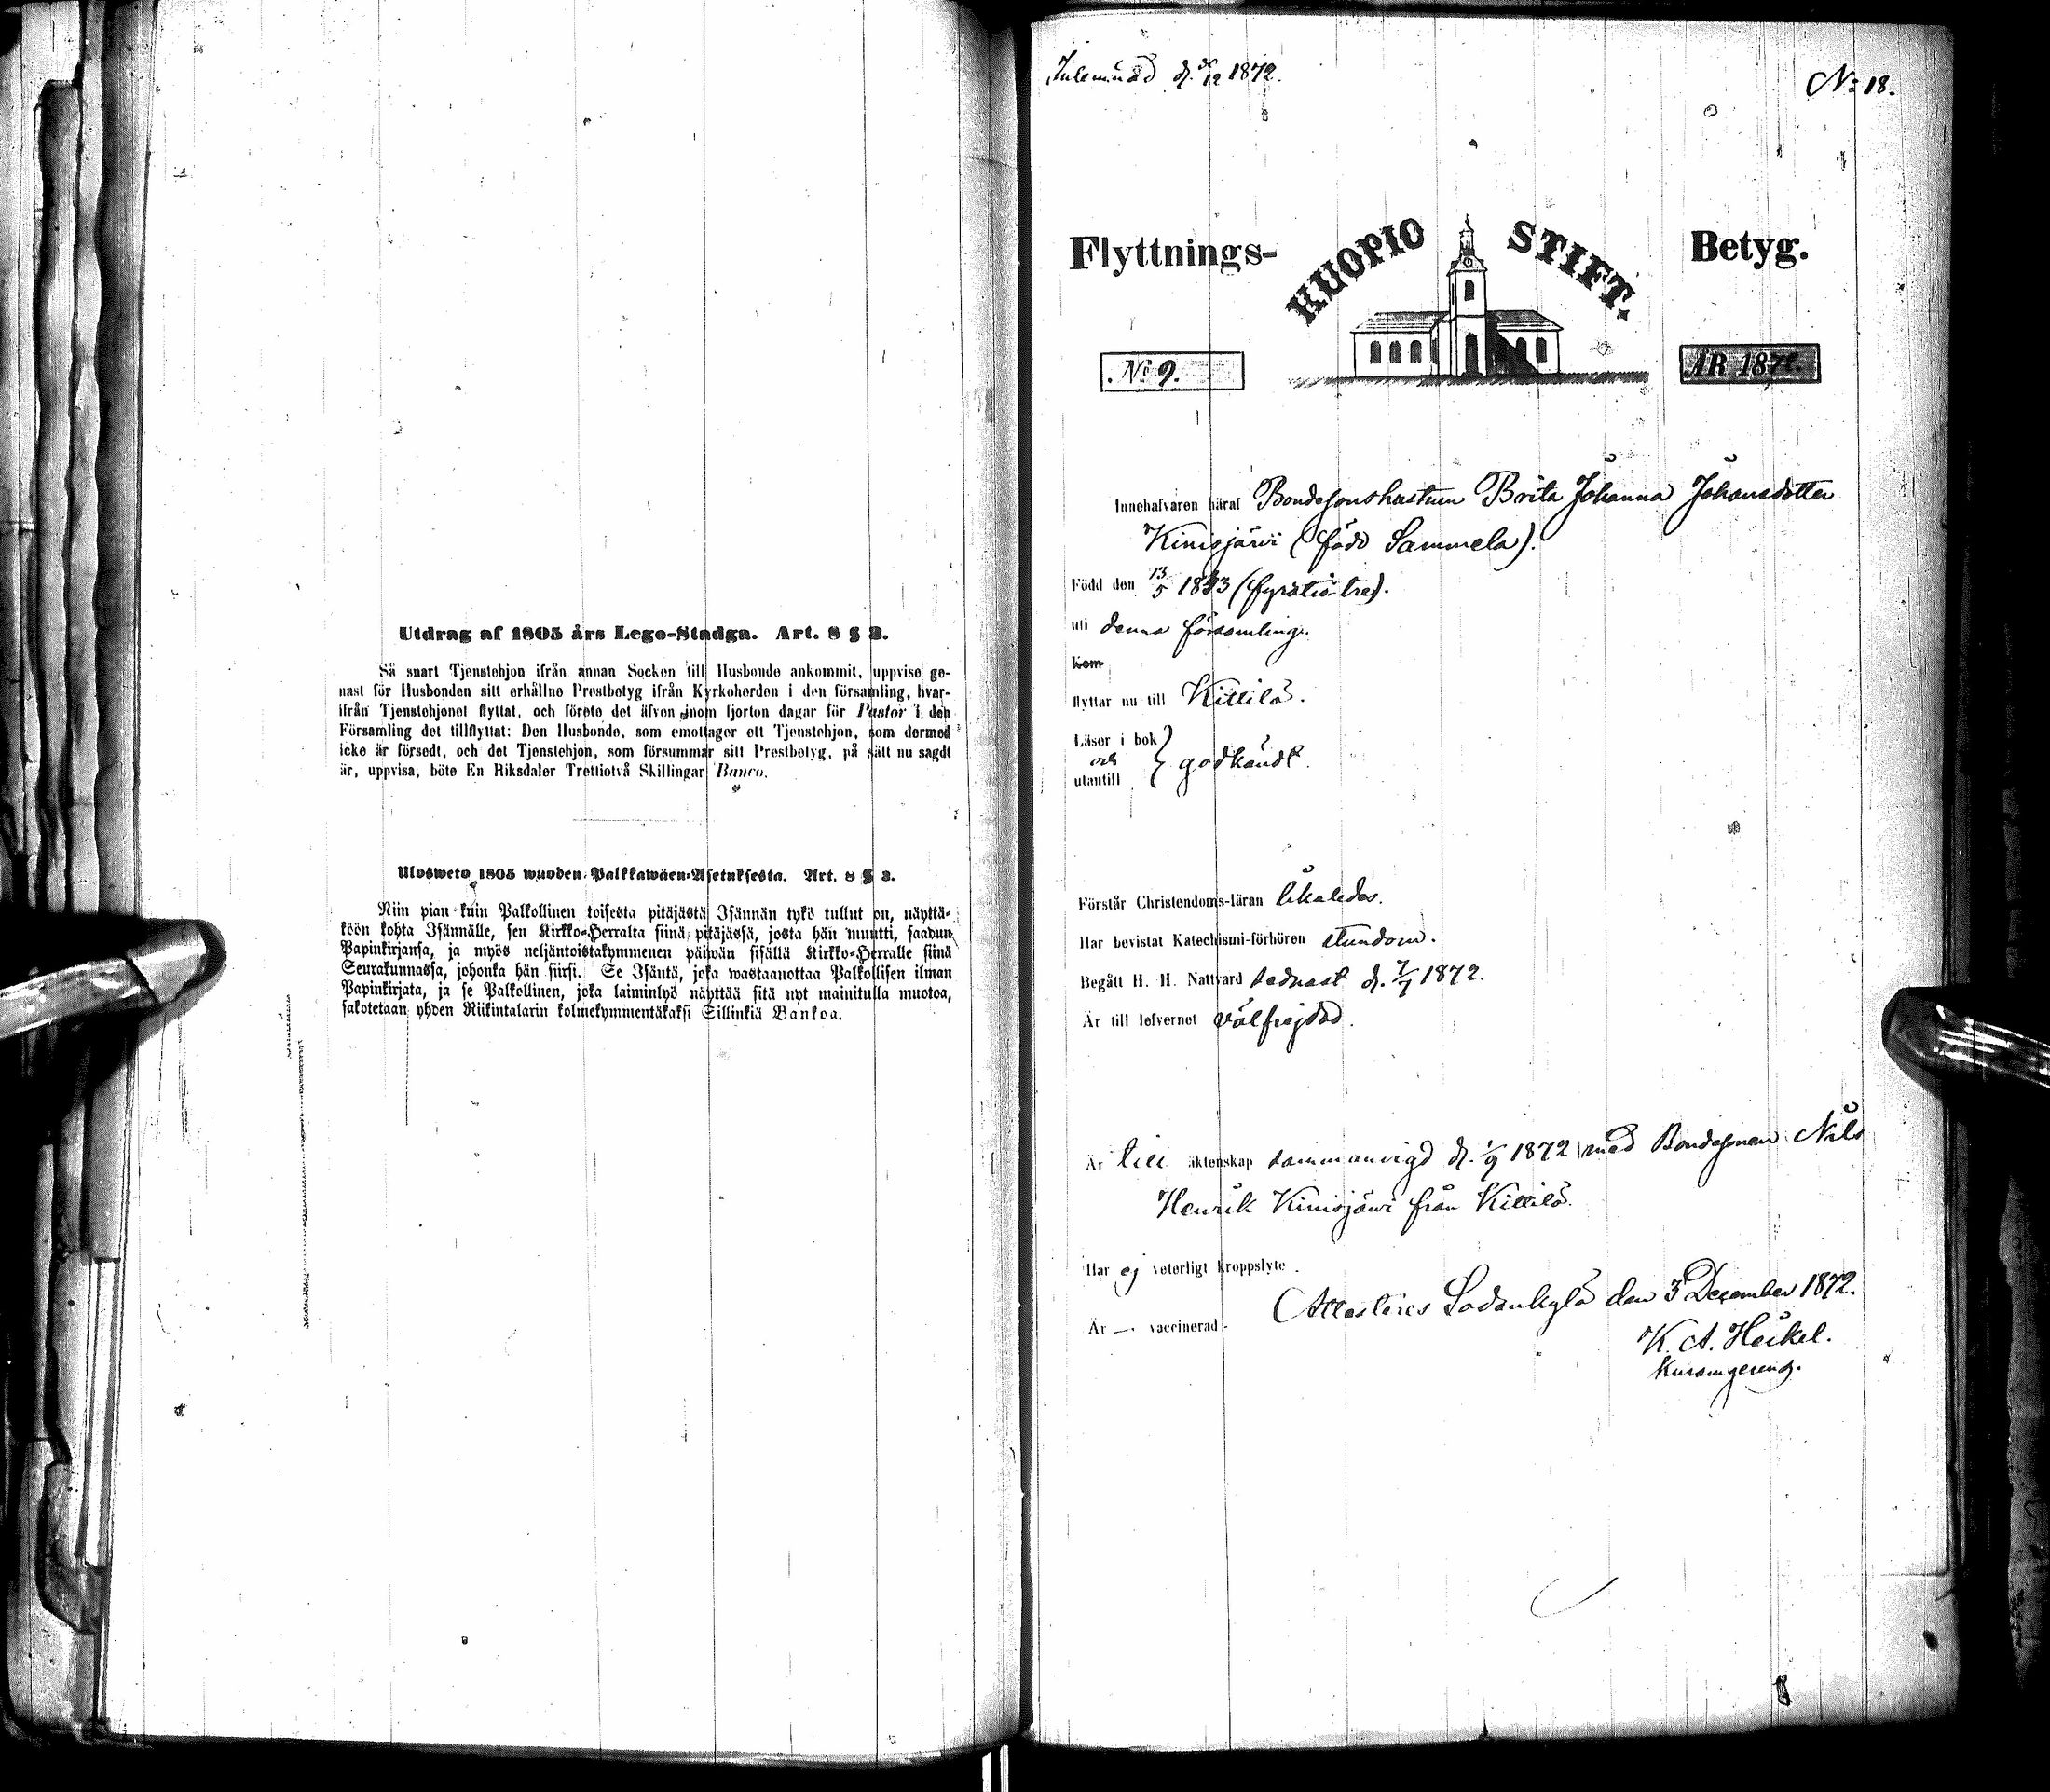 Utdrag af 1805 års Lego-Stadga. Art. 8 § 3.
Så snart Tjenstehjon ifrån annan Socken till Husbonde ankommit, uppvise ge-
nast för Husbonden sitt erhållne Prestbetyg ifrån Kyrkoherden i den församling, hvar-
ifrån Tjenstehjonet flyttat, och förete det äfven inom fjorton dagar för Pastor i den
Församling det tillflyttat: Den Husbonde, som emottager ett Tjenstehjon, som dermed
icke är försedt, och det Tjenstehjon, som försummar sitt Prestbetyg, på sätt nu sagdt
är, uppvisa, böte En Riksdaler Trettiotvå Skillingar Banco.
Ulosweto 1805 wuoden Palkkawäen-Asetuksesta. Art. 8 § 3.
Niin pian kuin Palkollinen toisesta pitäjästä Isännän tykö tullut on, näyttä-
köön kohta Isännälle, sen Kirkko-Herralta siinä pitäjässä, josta hän muutti, saadun
Papinkirjansa, ja myös neljäntoistakymmenen päiwän sisällä Kirkko-Herralle siinä
Seurakunnassa, johonka hän siirsi. Se Isäntä, joka wastaanottaa Palkollisen ilman
Papinkirjata, ja se Palkollinen, joka laiminlyö näyttää sitä nyt mainitulla muotoa,
sakotetaan yhden Riikintalarin kolmekymmentäkaksi Sillinkiä Bankoa.
d. 1872.
No 18.
Flyttnings- KUOPIO STIFT. Betyg.
No 9.
ÅR 1872.
Innehafvaren häraf Bondesonshustrun Brita Johanna Johansdotter
Kinisjärvi (född Sammela).
Född den 13/5 1843 (fyratiotre).
uti denna församling.
Kom
flyttar nu till Kittilä.
Läser i bok
och
utantill } godkändt.
Förstår Christendoms-läran likaledes.
Har bevistat Katechismi-förhören stundom.
Begått H. H. Nattvard sednast d. 7/7 1872.
Är till lefvernet välfrejdad.
Är till äktenskap sammanvigd d. 1/9 1872 med Bondesonen Nils
Henrik Kinisjärvi från Kittilä.
Har ej veterligt kroppslyte.
Är — vaccinerad.
Attesteres Sodankylä den 3 December 1872.
K. A. Heikel.